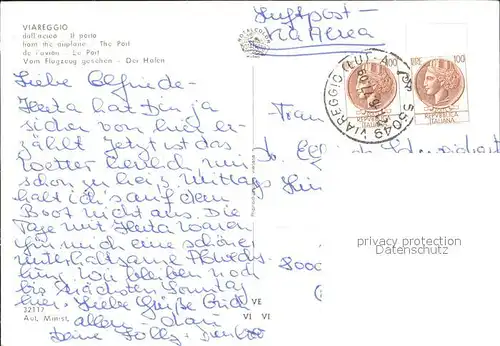 VIAREGGIO
dall'aereo - Il porto
from the airplane - The Port
de l'avion - Le Port
Vom Flugzeug gesehen - Der Hafen
Luftpost -
Via Aerea
Liebe Elfriede -
Herta hat Dir ja
sicher von hier er-
zählt jetzt ist das
Wetter herrlich mir
schon zu heiß Mittags
halt ich's auf dem
Boot nicht aus. Die
Tage mit Herta waren
für mich eine schöne
unterhaltsame Abwechs-
lung. Wir bleiben noch
bis nächsten Sonntag
hier. Liebe Grüße Euch
allen -
Deine
32117
Aut. Minist.
VE
VI VI
55049 VIAREGGIO (LU)
LIRE 100
REPVBBLICA
ITALIANA
100
REPVBBLICA
ITALIANA
Frau
8000
privacy protection
Datenschutz